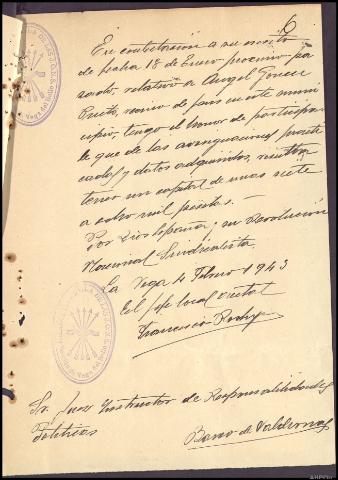 6
En contestación a su escrito
de fecha 18 de Enero proximo pa
sado, relativo a Angel
Prieto, vecino de en este muni
cipio, tengo el honor de participar
le que de las averiguaciones practi
cadas y datos adquiridos, resulta
tener un capital de unas siete
a ocho mil pesetas.
Por Dios España y su Revolución
Nacional Sindicalista.
La Vega 4 Febrero 1943
El Jefe local
Francisco
Sr. Juez Instructor de Responsabilidades
Politicas
Barco de Valdeorras